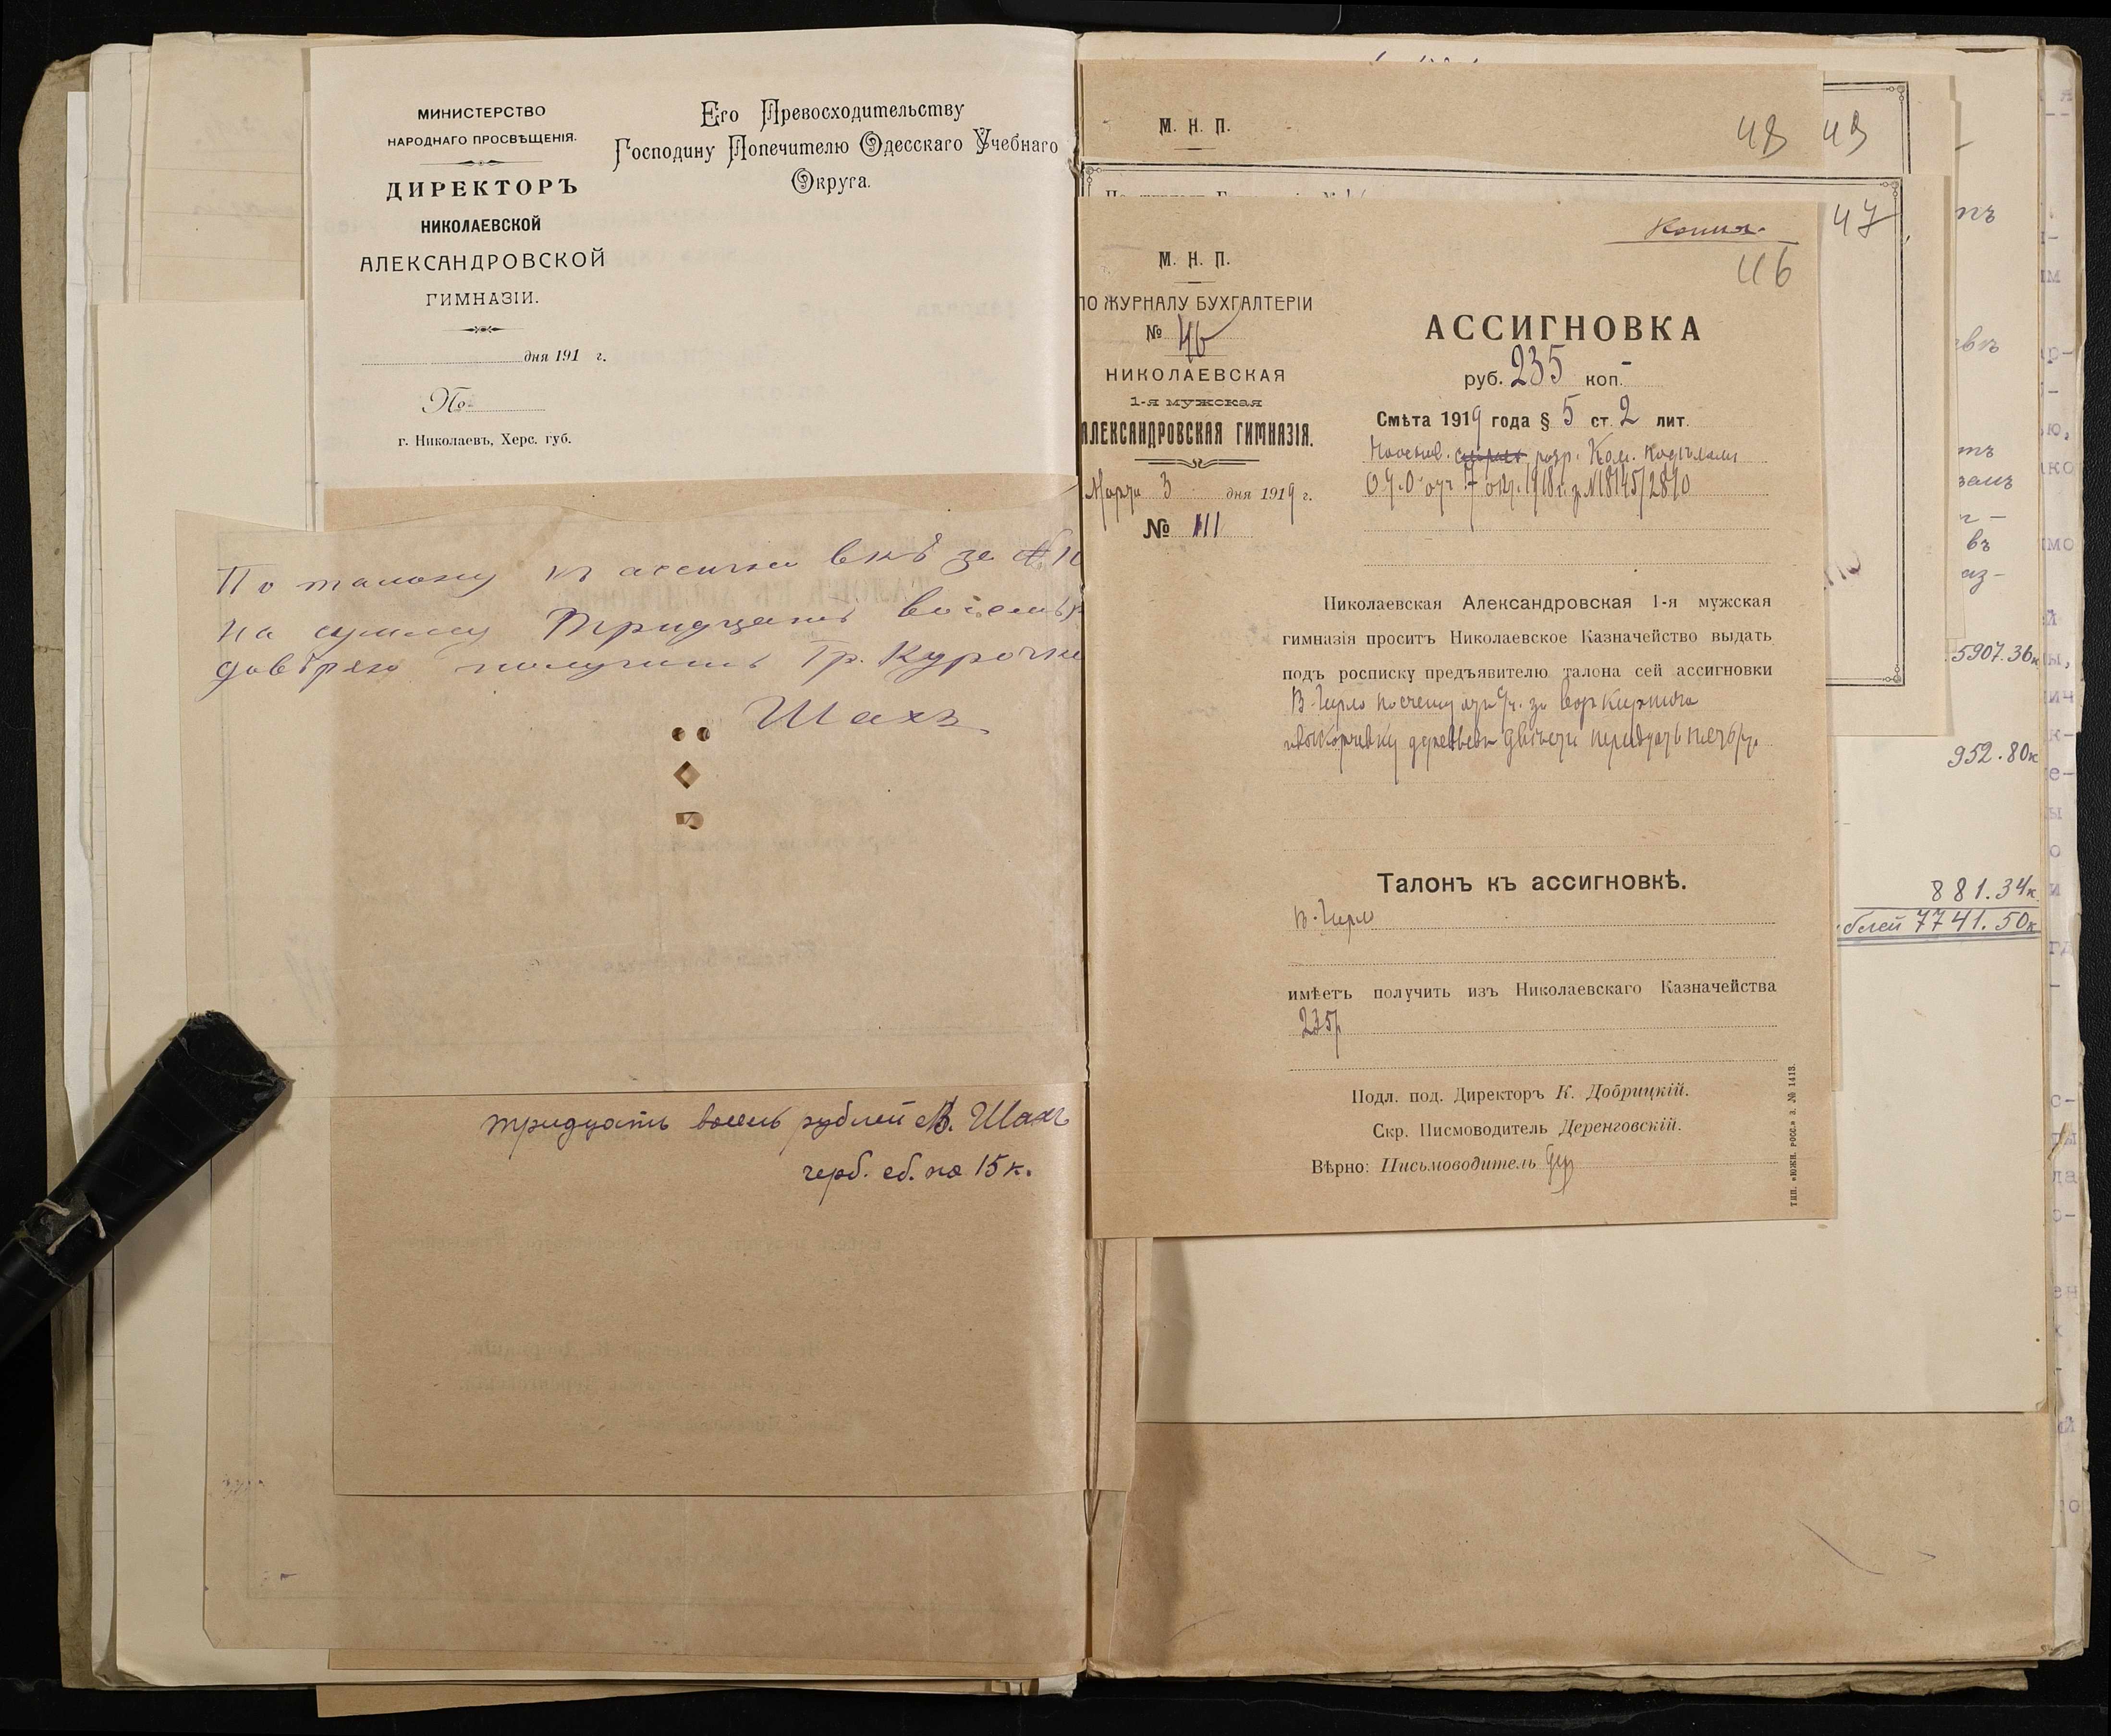 МИНИСТЕРСТВО
НАРОДНАГО ПРОСВѢЩЕНІЯ.
ДИРЕКТОРЪ
НИКОЛАЕВСКОЙ
АЛЕКСАНДРОВСКОЙ
ГИМНАЗІИ.
дня 191 г.
№
г. Николаевъ, Херс. губ.
Его Превосходительству
Господину Попечителю Одесскаго Учебнаго
Округа.
По талону къ ассигновкѣ за №
на сумму Тридцать восемь
довѣряю получить Гр. Курочки
Шахъ
тридцать восемь рублей В. Шахъ
герб. сб. на 15 к.
М. Н. П.
48
49
47
Копия.
46
М. Н. П.
ПО ЖУРНАЛУ БУХГАЛТЕРІИ
№ 46
НИКОЛАЕВСКАЯ
1-я мужская
АЛЕКСАНДРОВСКАЯ ГИМНАЗІЯ.
Марта 3 дня 1919 г.
№ 111
АССИГНОВКА
руб. 235 коп. -
Смѣта 1919 года § 5 ст. 2 лит.
разр. 
О.У.О. отъ 7 окт. 1918 г. за № 18145/2810
Николаевская Александровская 1-я мужская
гимназія проситъ Николаевское Казначейство выдать
подъ росписку предъявителю талона сей ассигновки
по счету за кирпича
деревьевъ двѣсти тридцать пять р.
Талонъ къ ассигновкѣ.
имѣетъ получить изъ Николаевскаго Казначейства
235 р
Подл. под. Директоръ К. Добрицкій.
Скр. Писмоводитель Деренговскій.
Вѣрно: Письмоводитель Дер
тип. «южн. росс.» з. № 1413.
5907.36к
952.80к
881.34к.
блей 7741.50к